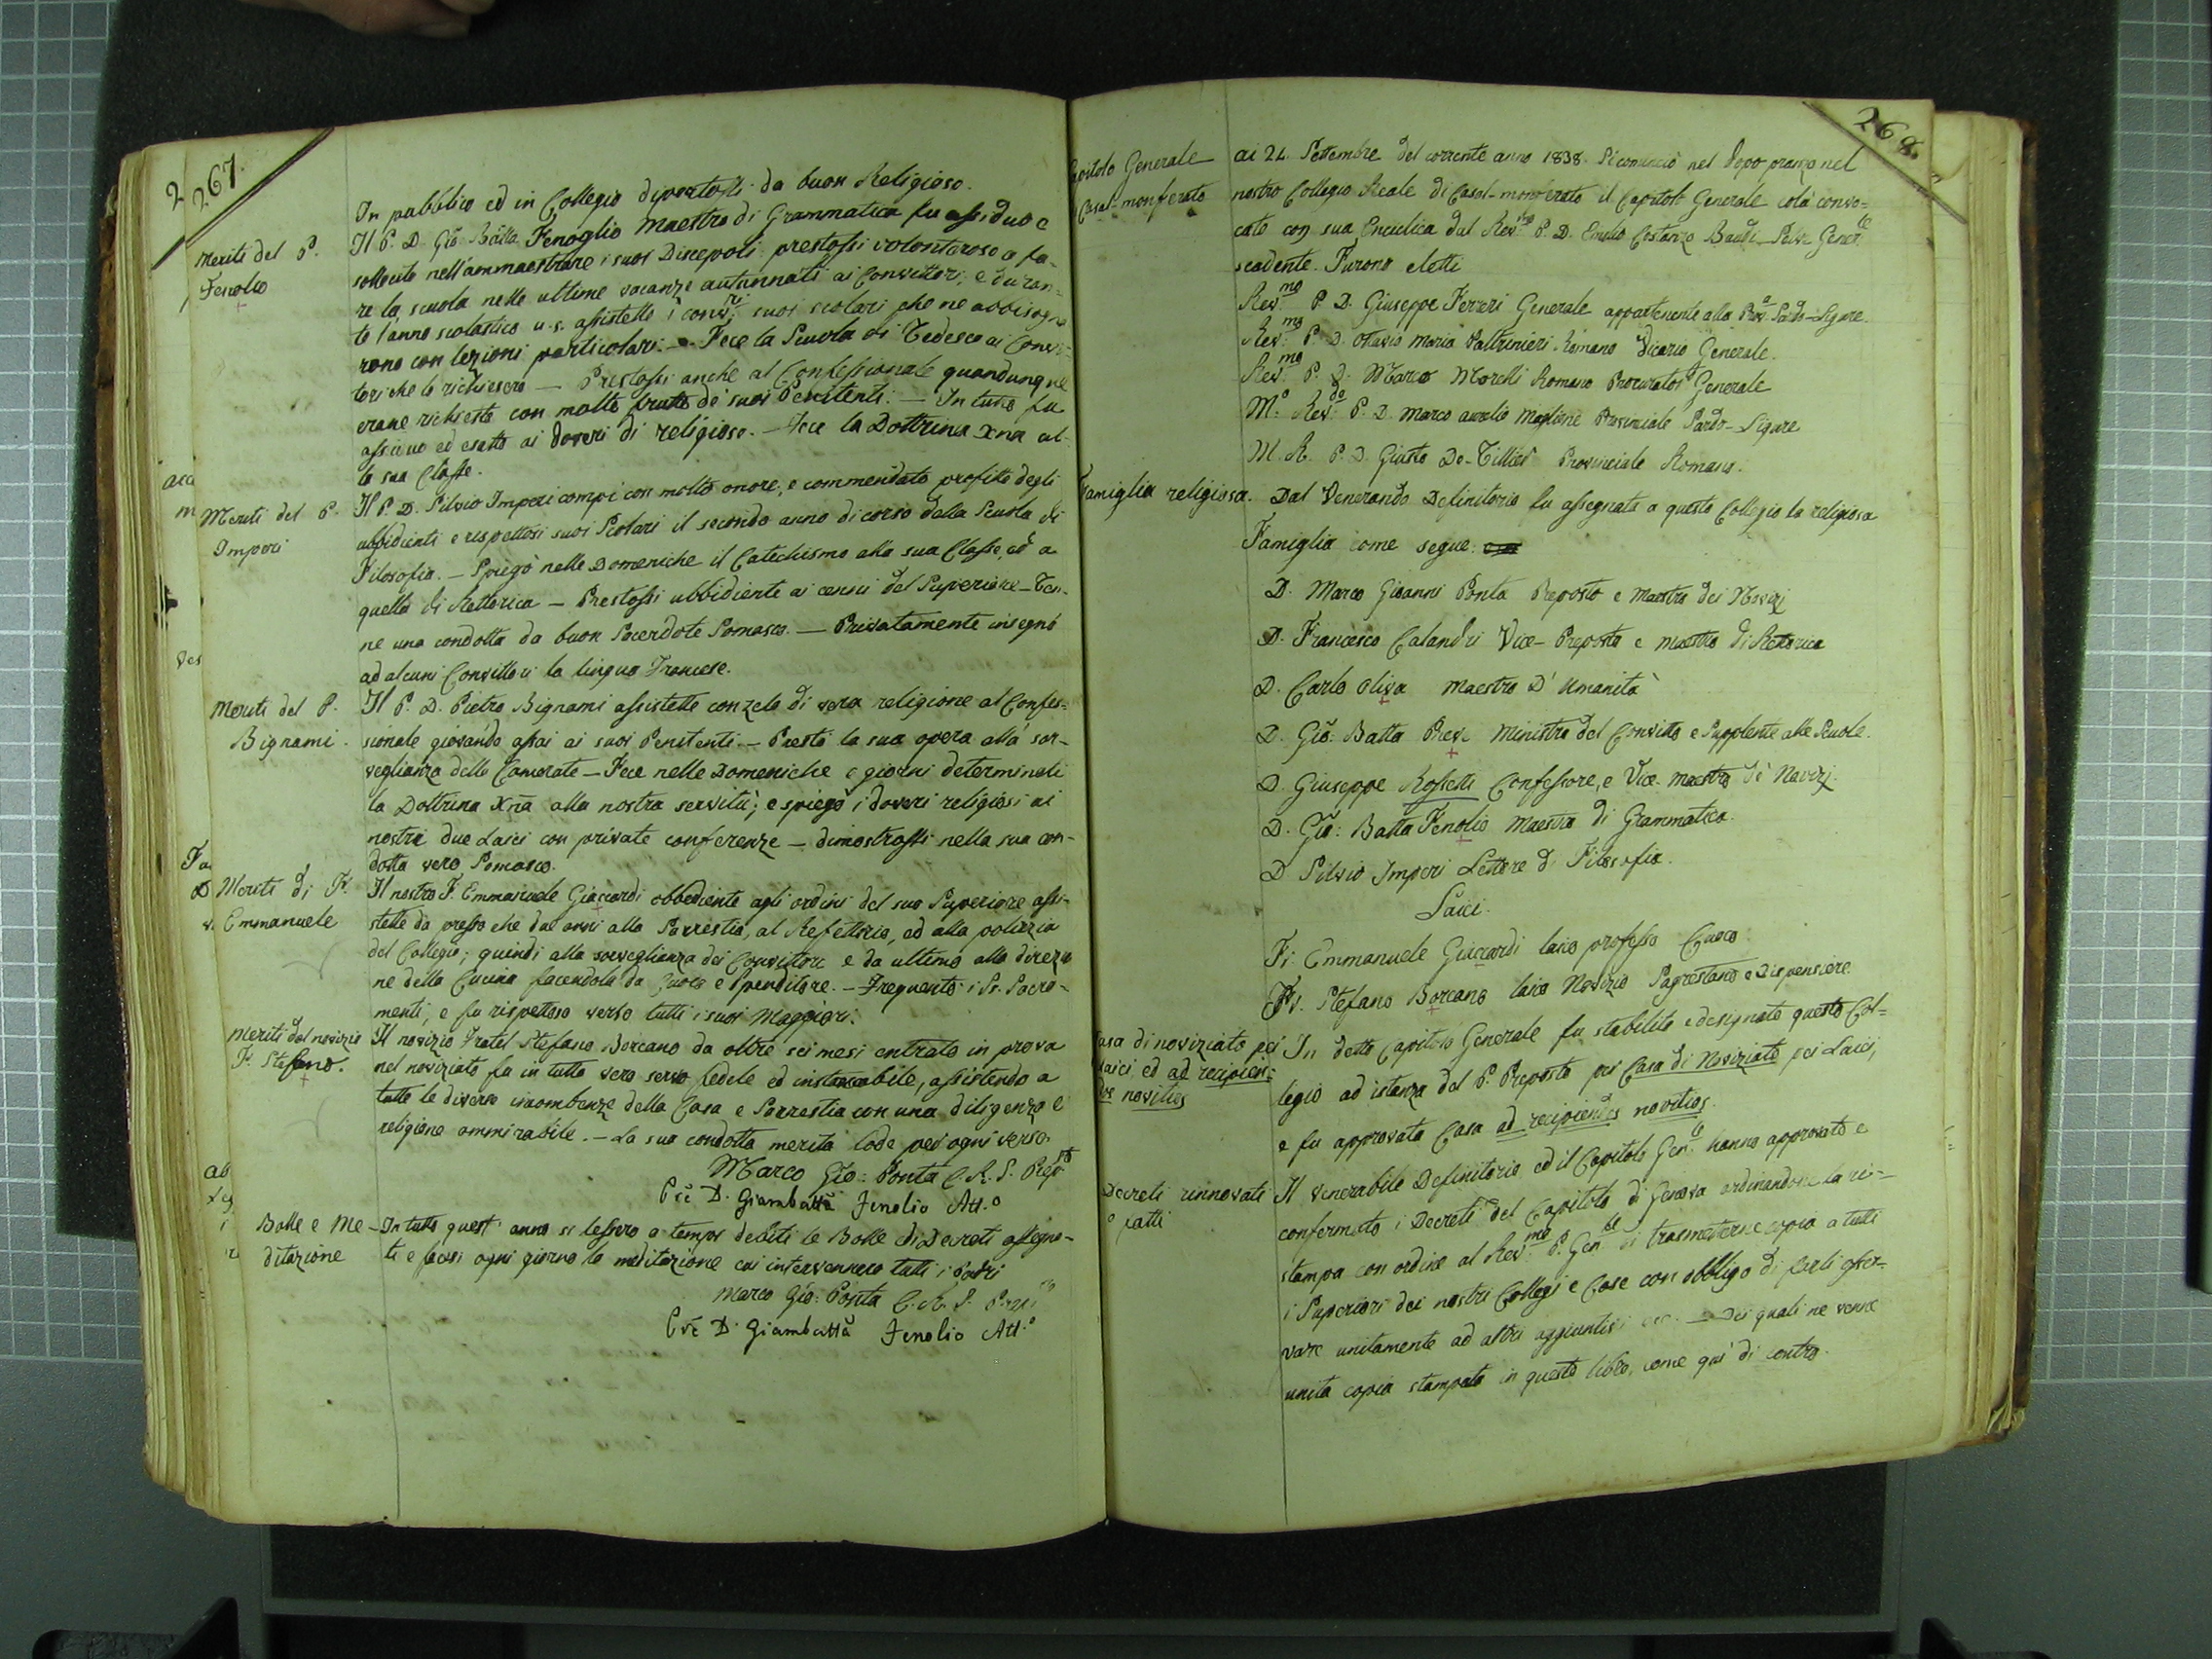 267.
In pubblico ed in Collegio diportossi da buon Religioso.
Meriti del P.
Fenolio
Il P. D. Gio: Batta Fenoglio Maestro di Grammatica fu assiduo e
sollecito nell'ammaestrare i suoi Discepoli: prestossi volonteroso a fa-
re la scuola nelle ultime vacanze autunnali ai Convittori; e duran-
te l'anno scolastico u.s. assistette i convri suoi scolari che ne abbisogna
rono con lezioni particolari. — Fece la Scuola di Tedesco ai Convit-
tori che lo richiesero — Prestossi anche al Confessionale quandunque
erane richiesto con molto frutto de' suoi Penitenti. — In tutto fu
assiduo ed esatto ai doveri di religioso. — Fece la Dottrina Xna al-
la sua Classe.
Meriti del P.
Imperi
Il P. D. Silvio Imperi compì con molto onore, e commendato profitto degli
ubbidienti e rispettosi suoi Scolari il secondo anno di corso della Scuola di
Filosofia. — Spiegò nelle Domeniche il Catechismo alla sua Classe, ed a
quella di Rettorica — Prestossi ubbidiente ai cenni del Superiore — Ten-
ne una condotta da buon Sacerdote Somasco. — Privatamente insegnò
ad alcuni Convittori la lingua Francese.
Meriti del P.
Bignami.
Il P. D. Pietro Bignami assistette con zelo di vera religione al Confes-
sionale giovando assai ai suoi Penitenti — Prestò la sua opera alla sor-
veglianza delle Camerate — Fece nelle Domeniche e giorni determinati
la Dottrina Xna alla nostra servitù; e spiegò i doveri religiosi ai
nostri due Laici con private conferenze — dimostrossi nella sua con-
dotta vero Somasco.
Meriti di Fr.
Emmanuele
Il nostro F. Emmanuele Giaccardi obbediente agli ordini del suo Superiore assi-
stette da presso che due anni alla Sacrestia, al Refettorio, ed alla polizia
del Collegio; quindi alla sorveglianza dei Convittori e da ultimo alla direzio
ne della Cucina facendola da Cuoco e Spenditore. — Frequentò i SS. Sacra-
menti, e fu rispettoso verso tutti i suoi Maggiori.
Meriti del novizio
F. Stefano.
Il novizio Fratel Stefano Borcano da oltre sei mesi entrato in prova
nel noviziato fu in tutto vero servo fedele ed instancabile, assistendo a
tutte le diverse incombenze della Casa e Sacrestia con una diligenza e
religione ammirabile. — La sua condotta merita lode per ogni verso.
Marco Gio: Ponta C. R. S. Prepto
D. Giambatta Fenolio Att.o
Bolle e Me-
ditazione
In tutto quest'anno si lessero a tempi debiti le Bolle e i Decreti assegna-
ti e fecesi ogni giorno la meditazione cui intervennero tutti i Padri
Marco Gio: Ponta C. R. S. Prep
D. Giambatta Fenolio Att.o
268.
Capitolo Generale
Casal-monferato
ai 24. Settembre del corrente anno 1838. Si cominciò nel dopo pranzo nel
nostro Collegio Reale di Casal-monferato il Capitolo Generale colà convo-
cato con sua Enciclica dal Revmo P. D. Emilio Costanzo Baudi-Selve Generle
scadente. Furono eletti
Revmo P. D. Giuseppe Ferreri Generale appartenente alla Prova Sardo-Ligure.
Revmo P. D. Ottavio Maria Paltrinieri Romano Vicario Generale.
Revmo P. D. Marco Morelli Romano Procurator Generale
M.o Revdo P. D. Marco Aurelio Maglione Provinciale Sardo-Ligure
M. R. P. D. Giusto De-Tillier Provinciale Romano.
Famiglia religiosa.
Dal Venerando Definitorio fu assegnata a questo Collegio la religiosa
Famiglia come segue:
D. Marco Gioanni Ponta Preposto e Maestro dei Novizi
D. Francesco Calandri Vice-Preposto e Maestro di Retorica
D. Carlo Oliva Maestro D'Umanità
D. Gio: Batta Preve Ministro del Convitto e Supplente alle Scuole.
D. Giuseppe Rossetti Confessore, e Vice-maestro de' Novizj.
D. Gio: Batta Fenolio Maestro di Grammatica.
D Silvio Imperi Lettore di Filosofia.
Laici.
Fr. Emmanuele Giaccardi laico professo Cuoco.
Fr. Stefano Borcano laico Novizio Sagrestano e Dispensiere
Casa di noviziato pei
laici, ed ad recipien-
dos novitios
In detto Capitolo Generale fu stabilito e designato questo Col-
legio ad istanza del P. Preposto per Casa di Noviziato pei Laici,
e fu approvata Casa ad recipiendos novitios.
Decreti rinnovati
e fatti
Il Venerabile Definitorio ed il Capitolo Genle hanno approvato e
confermato i Decreti del Capitolo di Genova ordinandone la ri-
stampa con ordine al Revmo P. Genle di trasmetterne copia a tutti
i Superiori dei nostri Collegi e Case con obbligo di farli osser-
vare unitamente ad altri aggiuntivi — Dei quali ne venne
unita copia stampata in questo libro, come qui di contro.